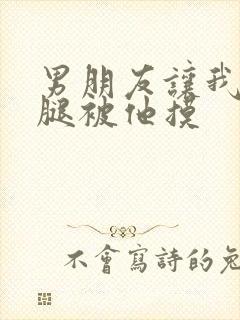 男朋友讓我
腿被他摸
不會寫詩的兔